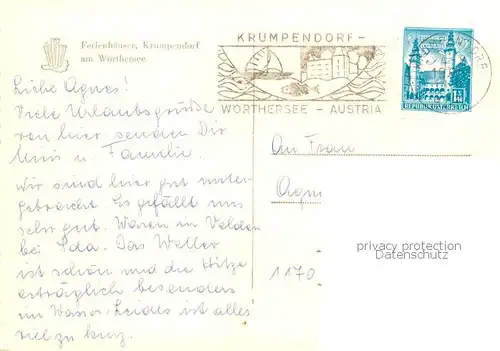 Ferienhäuser, Krumpendorf
am Wörthersee
KRUMPENDORF –
WÖRTHERSEE – AUSTRIA
REPUBLIK ÖSTERREICH
Liebe Agnes!
Viele Urlaubsgrüße
von hier senden Dir
u. Familie.
Wir sind hier gut unter-
gebracht. Es gefällt uns
sehr gut. Waren in Velden
bei Ida. Das Wetter
ist schön und die Hitze
erträglich besonders
im Wasser. Leider ist alles
viel zu kurz.
An Frau
Agn
1170
privacy protection
Datenschutz